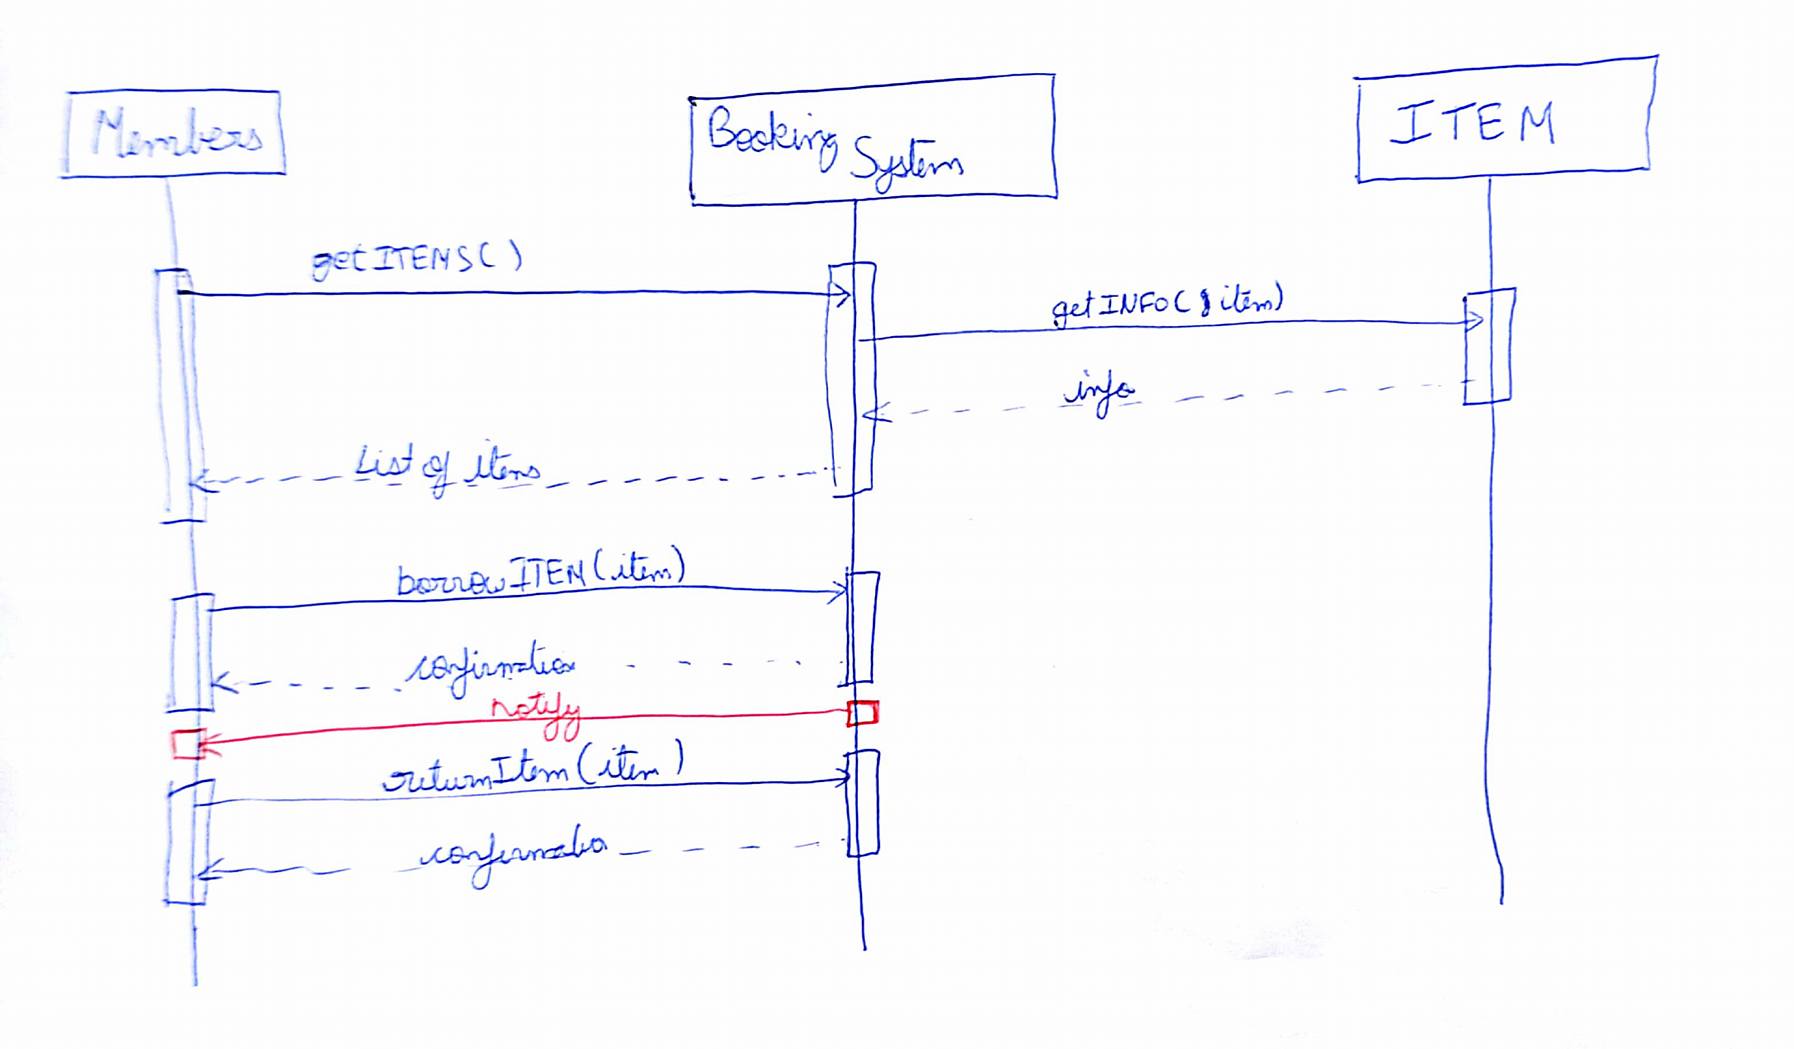 Members
Booking
System
ITEM
getITEMS()
getINFO(item)
info
List of items
borrowITEM(item)
confirmation
notify
returnItem(item)
confirmatio